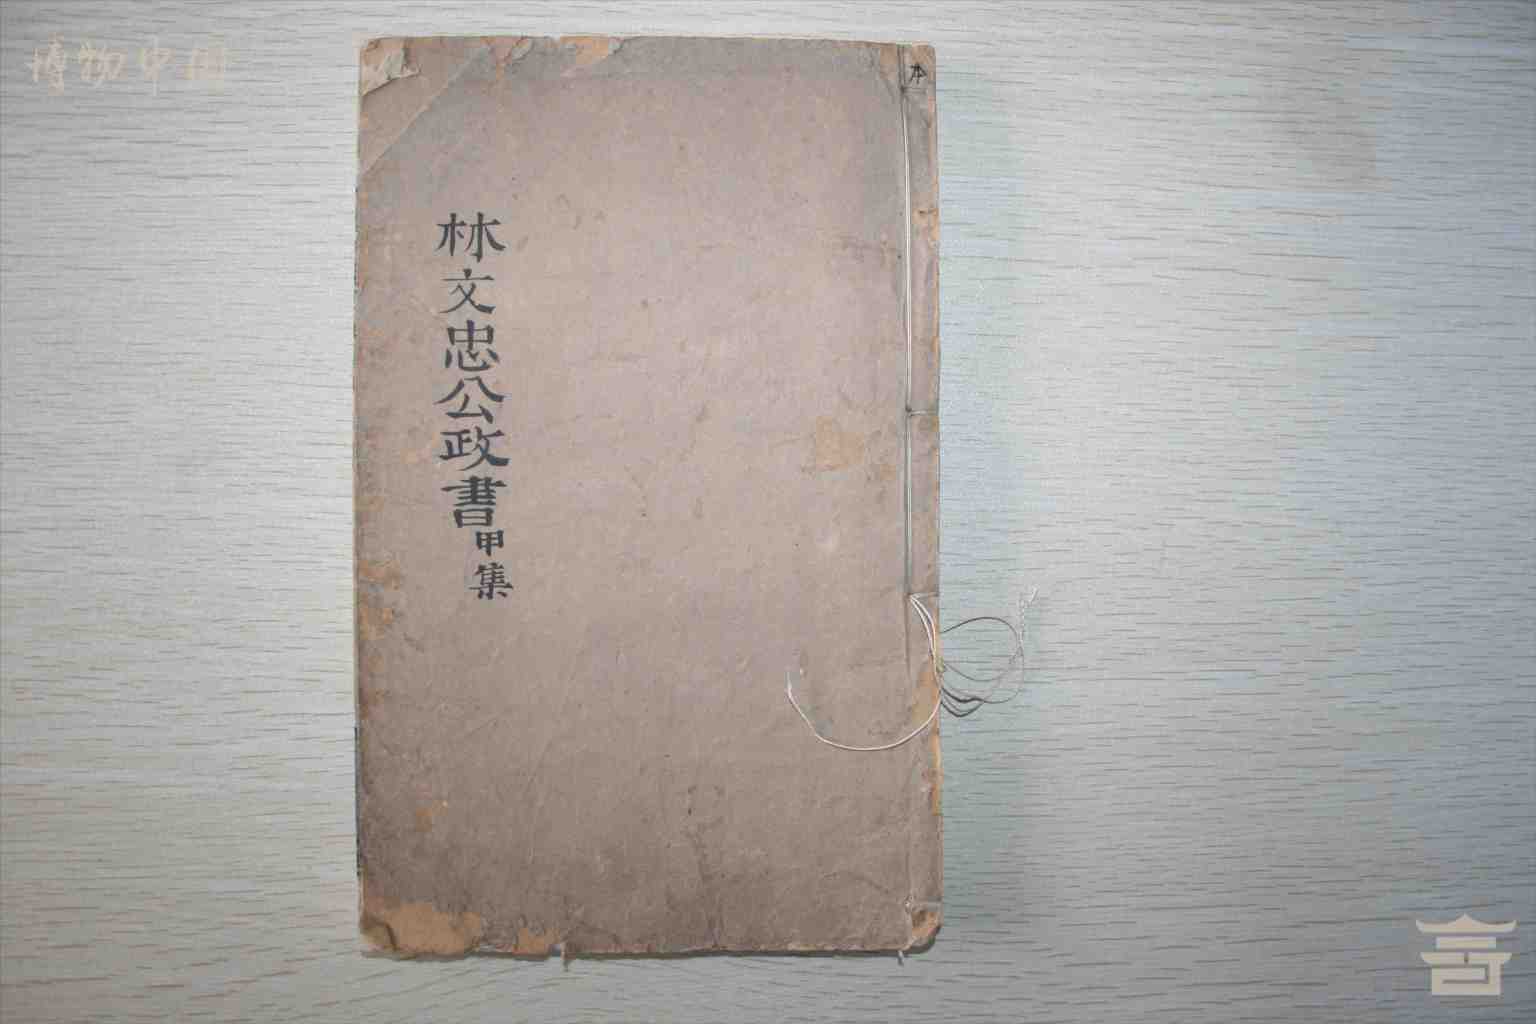 博物中国
本
林文忠公政書甲集